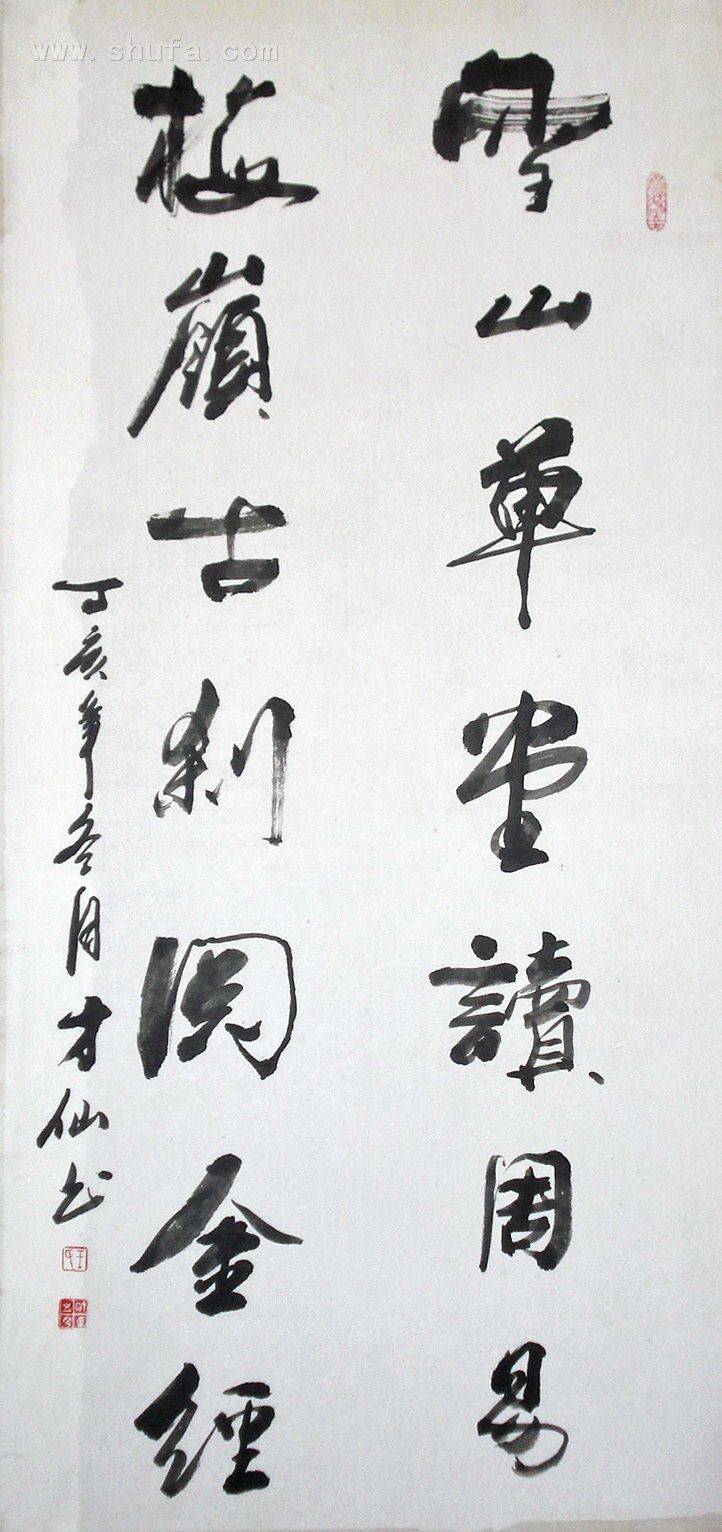 www.shufa.com
山草堂讀周易
梅嶺古刹閱金經
丁亥年冬月才仙书